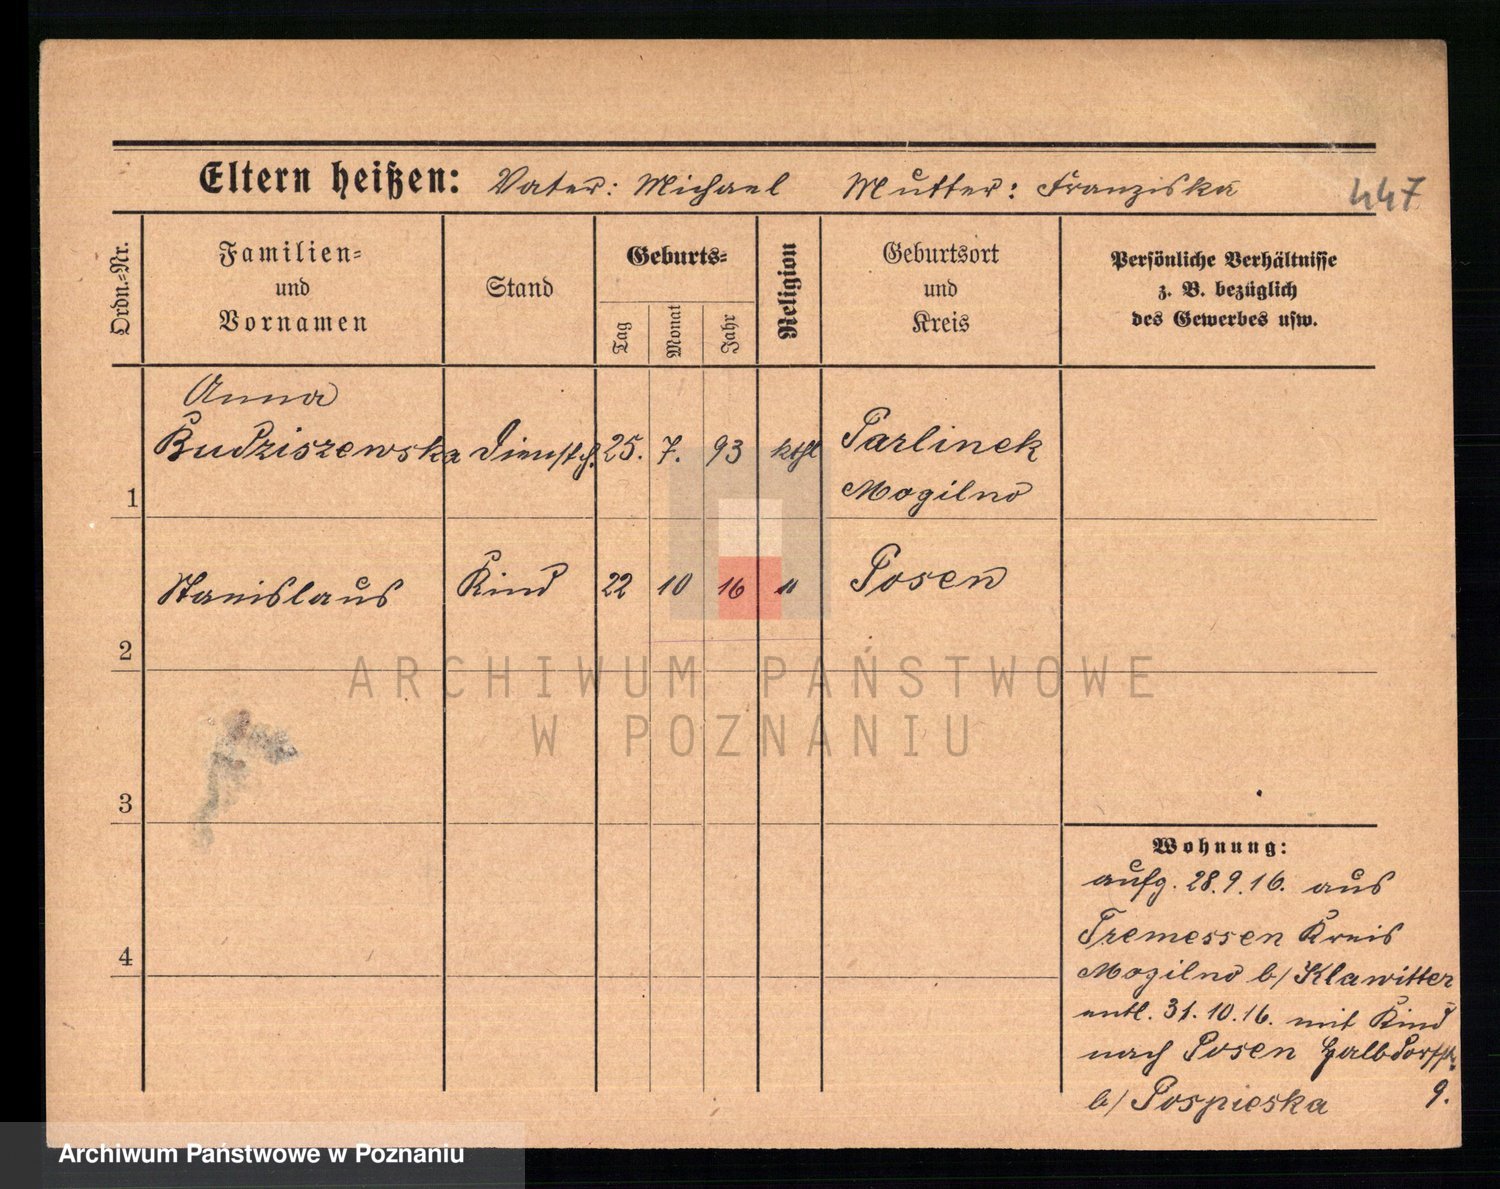 Eltern heißen: Vater: Michael Mutter: Franziska
447
Ordn.-Nr.
Familien-
und
Vornamen
Stand
Geburts-
Tag
Monat
Jahr
Religion
Geburtsort
und
Kreis
Persönliche Verhältnisse
z. B. bezüglich
des Gewerbes usw.
Anna
Budziszewska Dienstch. 25. 7. 93 kthl Parlinek
1 Mogilno
Stanislaus Kind 22 10 16 " Posen
2
3
4
Wohnung:
aufg. 28.9.16. aus
Tremessen Kreis
Mogilno b/ Klawitter
entl. 31.10.16. mit Kind
nach Posen Halbdorfstr.
b/ Pospieska 9.
ARCHIWUM PAŃSTWOWE
W POZNANIU
Archiwum Państwowe w Poznaniu